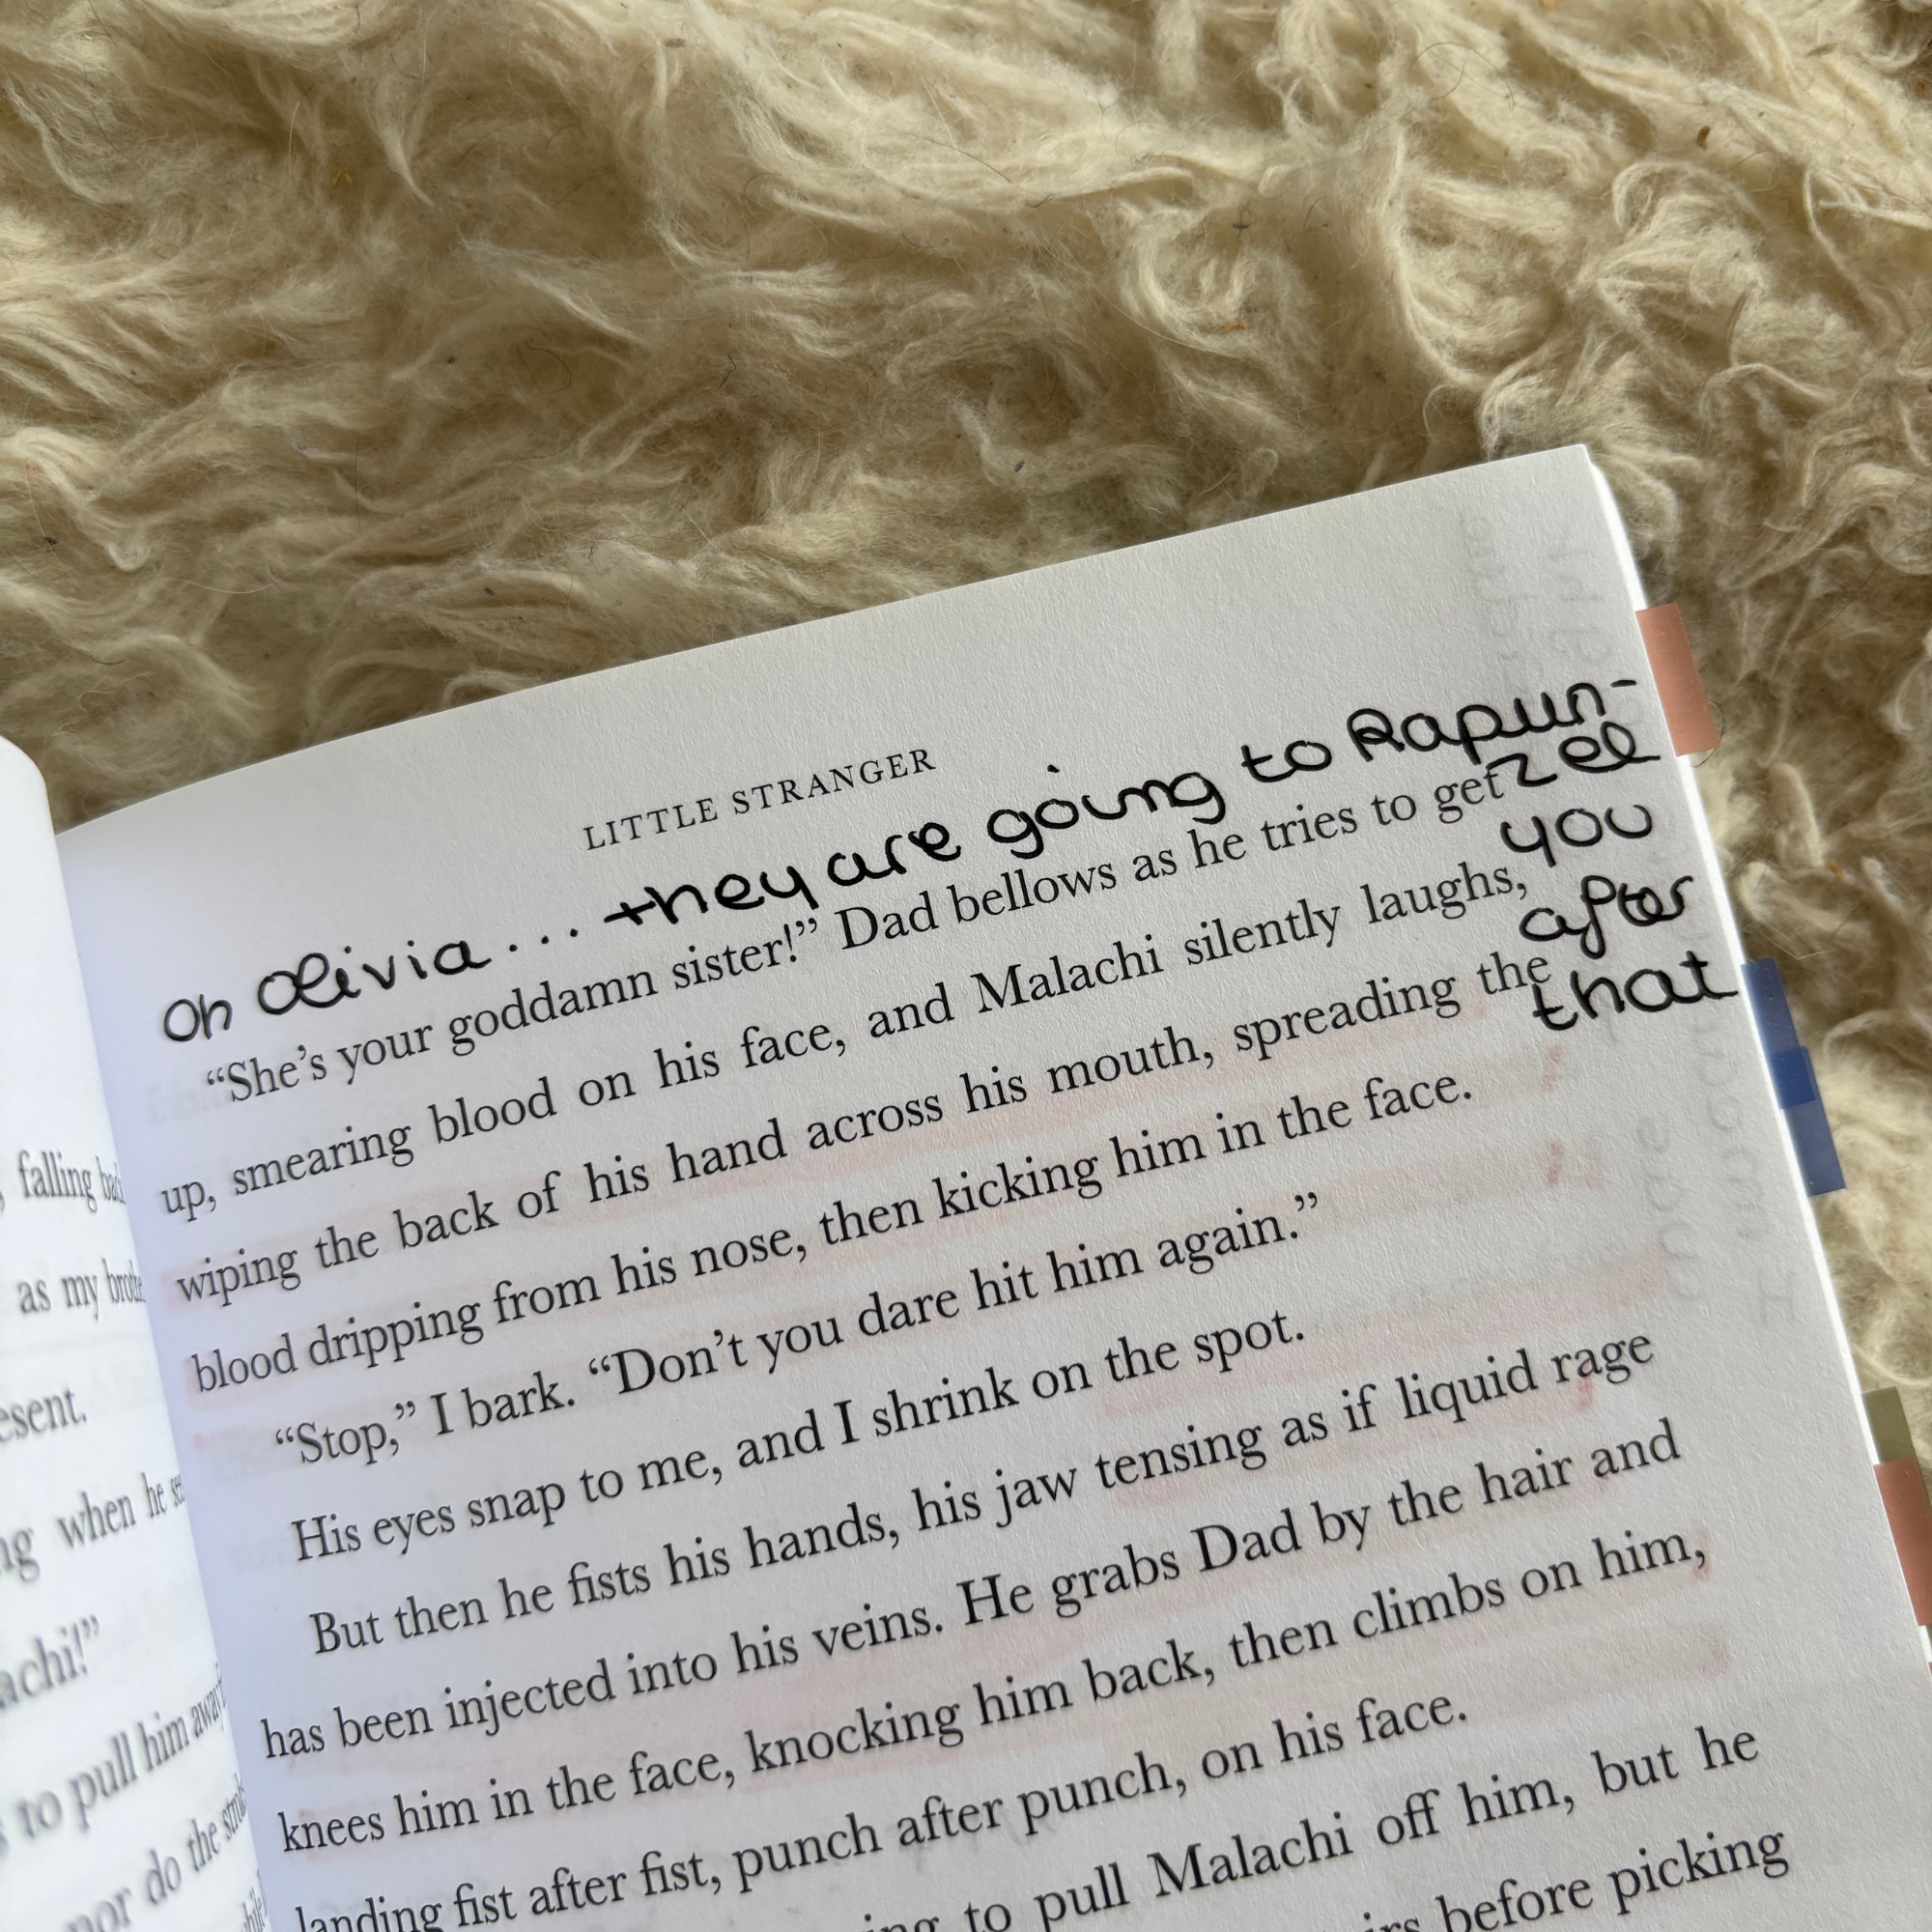 , falling
as my
esent.
when he
achi!"
to pull him away
nor do the
LITTLE STRANGER
oh olivia... they are going to Rapun-
zel
you
after
that
“She’s your goddamn sister!” Dad bellows as he tries to get
up, smearing blood on his face, and Malachi silently laughs,
wiping the back of his hand across his mouth, spreading the
blood dripping from his nose, then kicking him in the face.
“Stop,” I bark. “Don’t you dare hit him again.”
His eyes snap to me, and I shrink on the spot.
But then he fists his hands, his jaw tensing as if liquid rage
has been injected into his veins. He grabs Dad by the hair and
knees him in the face, knocking him back, then climbs on him,
landing fist after fist, punch after punch, on his face.
to pull Malachi off him, but he
before picking